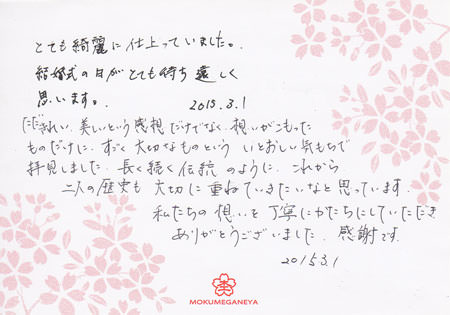 とても綺麗に仕上っていました。
結婚式の日がとても待ち遠しく
思います。
2015.3.1
ただきれい、美しいという感想だけでなく、想いがこもった
ものだけに、すごく大切なものという いとおしい気もちで
拝見しました。長く続く伝統のように、これから
二人の歴史も大切に重ねていきたいなと思っています。
私たちの想いを丁寧にかたちにしていただき
ありがとうございました。感謝です。
2015 3.1
MOKUMEGANEYA